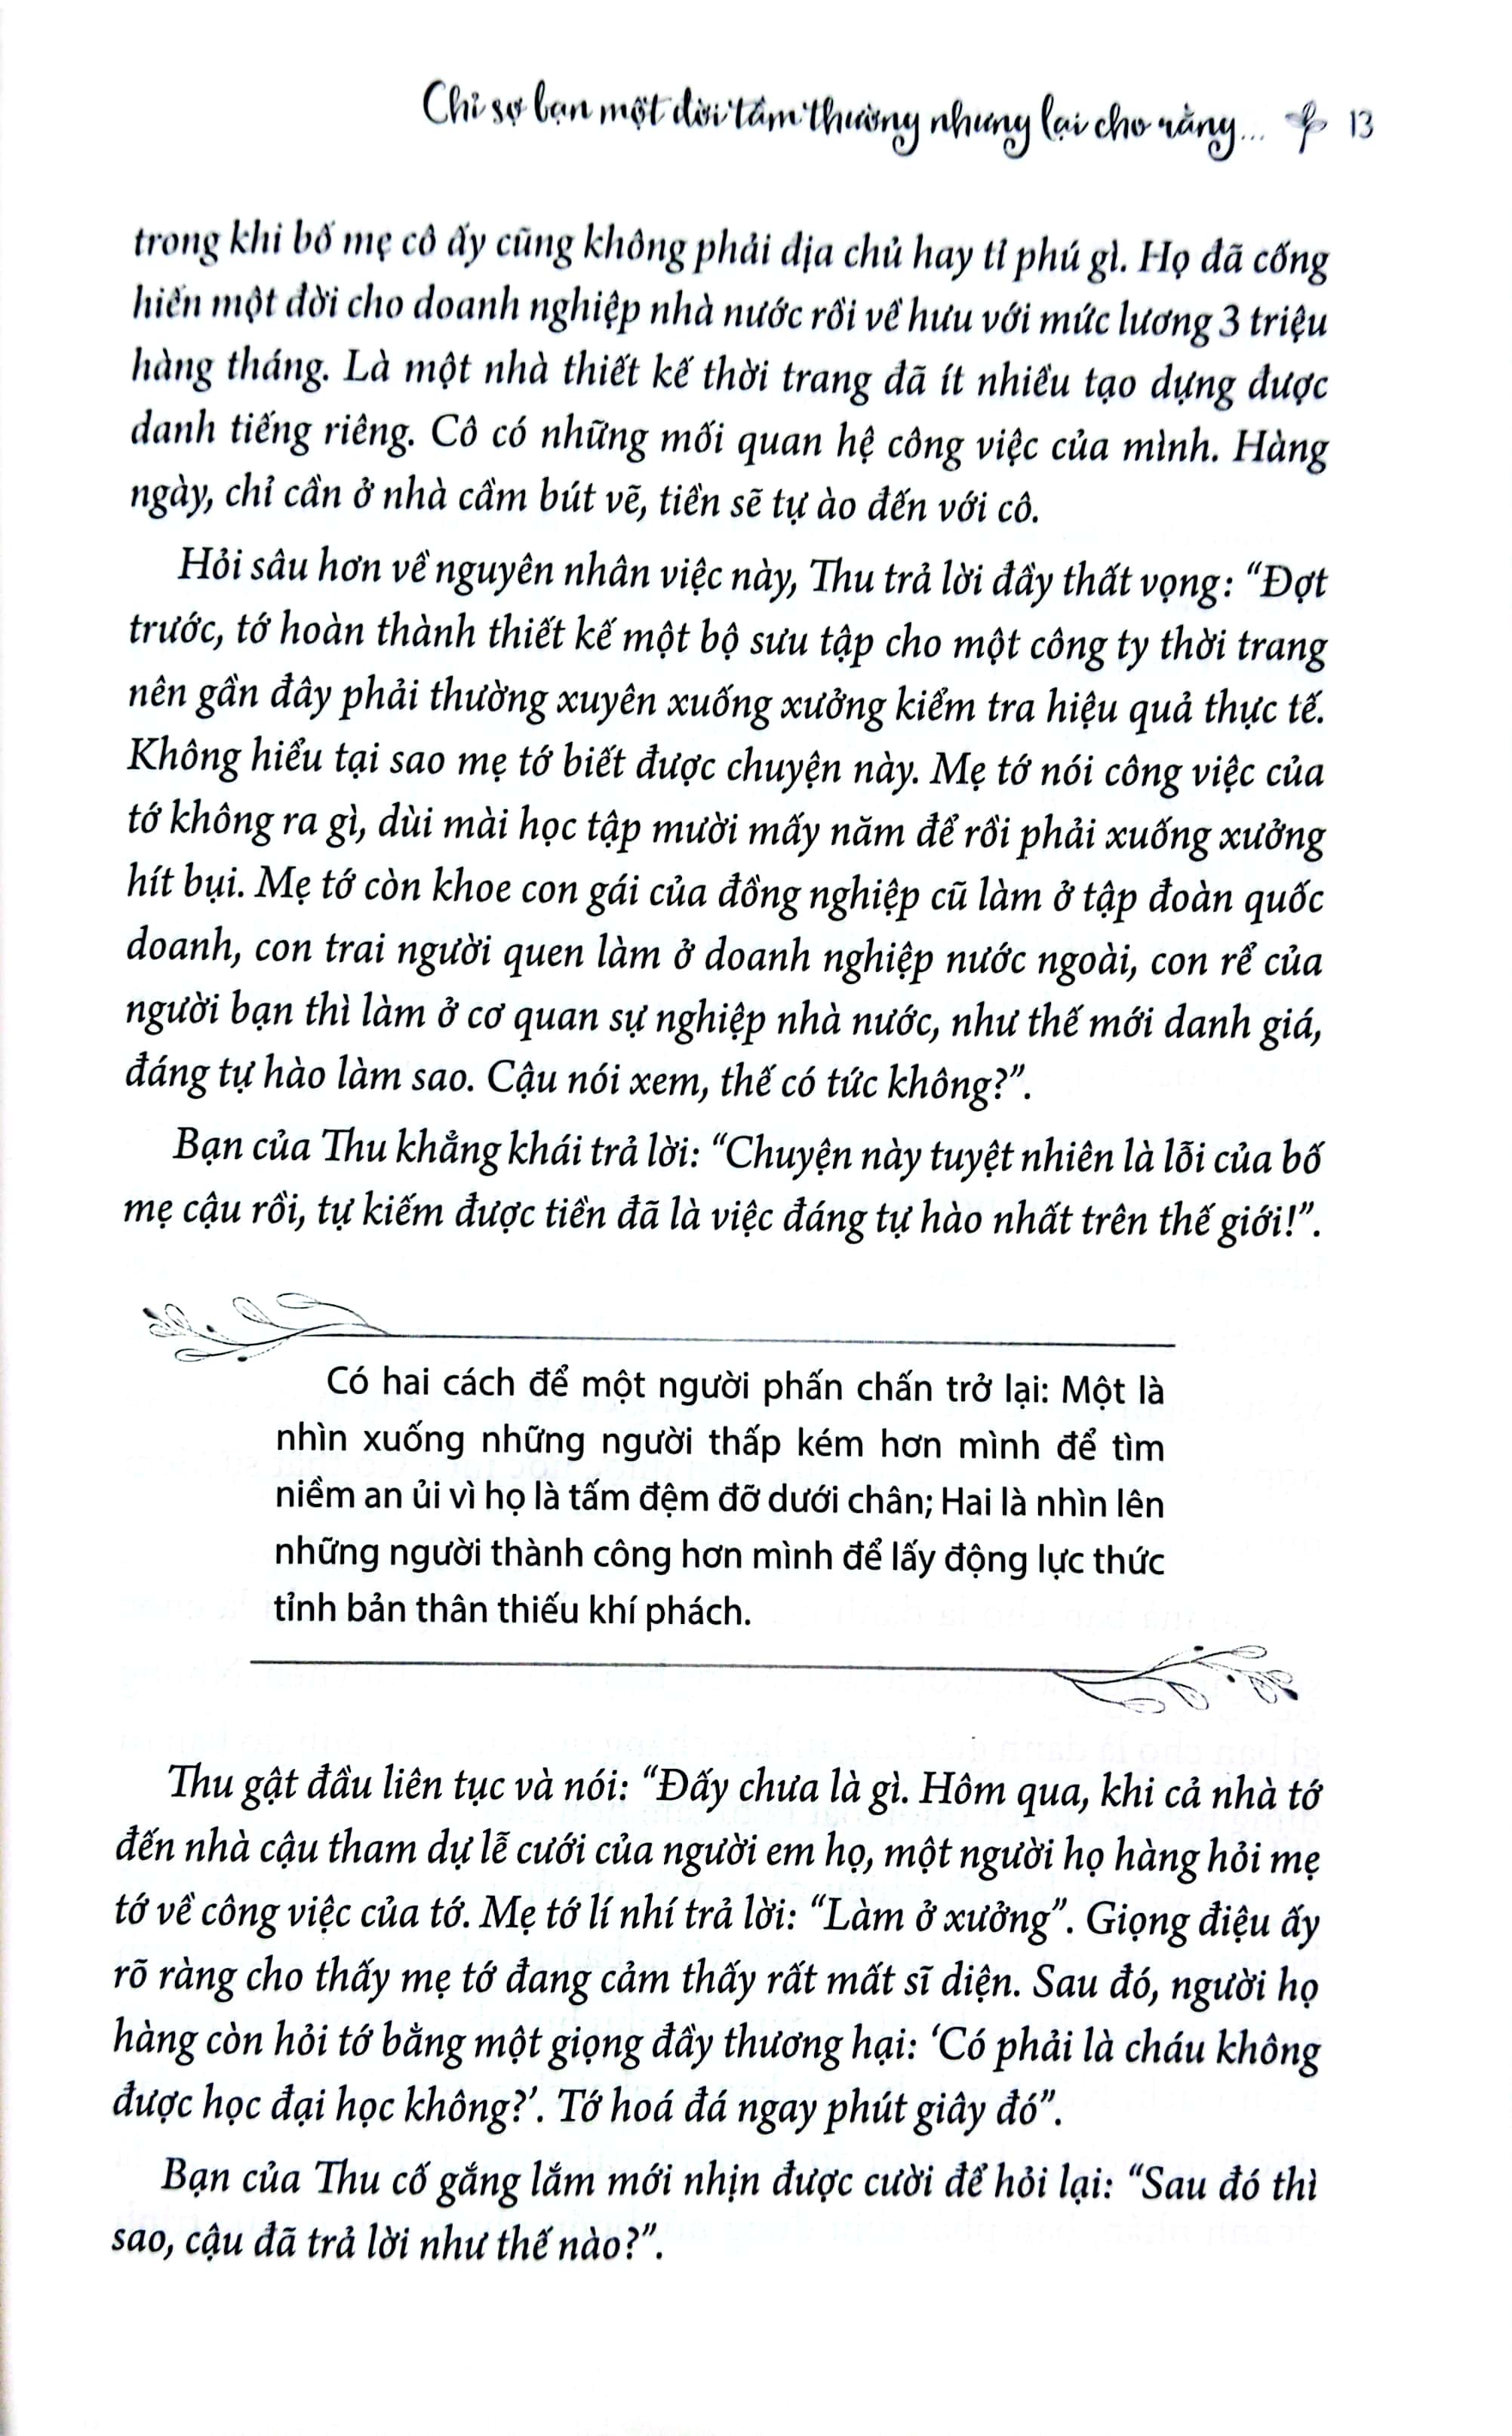 Chỉ sợ bạn một đời tầm thường nhưng lại cho rằng... 13
trong khi bố mẹ cô ấy cũng không phải địa chủ hay tỉ phú gì. Họ đã cống
hiến một đời cho doanh nghiệp nhà nước rồi về hưu với mức lương 3 triệu
hàng tháng. Là một nhà thiết kế thời trang đã ít nhiều tạo dựng được
danh tiếng riêng. Cô có những mối quan hệ công việc của mình. Hàng
ngày, chỉ cần ở nhà cầm bút vẽ, tiền sẽ tự ào đến với cô.
Hỏi sâu hơn về nguyên nhân việc này, Thu trả lời đầy thất vọng: “Đợt
trước, tớ hoàn thành thiết kế một bộ sưu tập cho một công ty thời trang
nên gần đây phải thường xuyên xuống xưởng kiểm tra hiệu quả thực tế.
Không hiểu tại sao mẹ tớ biết được chuyện này. Mẹ tớ nói công việc của
tớ không ra gì, dùi mài học tập mười mấy năm để rồi phải xuống xưởng
hít bụi. Mẹ tớ còn khoe con gái của đồng nghiệp cũ làm ở tập đoàn quốc
doanh, con trai người quen làm ở doanh nghiệp nước ngoài, con rể của
người bạn thì làm ở cơ quan sự nghiệp nhà nước, như thế mới danh giá,
đáng tự hào làm sao. Cậu nói xem, thế có tức không?”.
Bạn của Thu khẳng khái trả lời: “Chuyện này tuyệt nhiên là lỗi của bố
mẹ cậu rồi, tự kiếm được tiền đã là việc đáng tự hào nhất trên thế giới!”.
Có hai cách để một người phấn chấn trở lại: Một là
nhìn xuống những người thấp kém hơn mình để tìm
niềm an ủi vì họ là tấm đệm đỡ dưới chân; Hai là nhìn lên
những người thành công hơn mình để lấy động lực thức
tỉnh bản thân thiếu khí phách.
Thu gật đầu liên tục và nói: “Đấy chưa là gì. Hôm qua, khi cả nhà tớ
đến nhà cậu tham dự lễ cưới của người em họ, một người họ hàng hỏi mẹ
tớ về công việc của tớ. Mẹ tớ lí nhí trả lời: “Làm ở xưởng”. Giọng điệu ấy
rõ ràng cho thấy mẹ tớ đang cảm thấy rất mất sĩ diện. Sau đó, người họ
hàng còn hỏi tớ bằng một giọng đầy thương hại: ‘Có phải là cháu không
được học đại học không?’. Tớ hoá đá ngay phút giây đó”.
Bạn của Thu cố gắng lắm mới nhịn được cười để hỏi lại: “Sau đó thì
sao, cậu đã trả lời như thế nào?”.